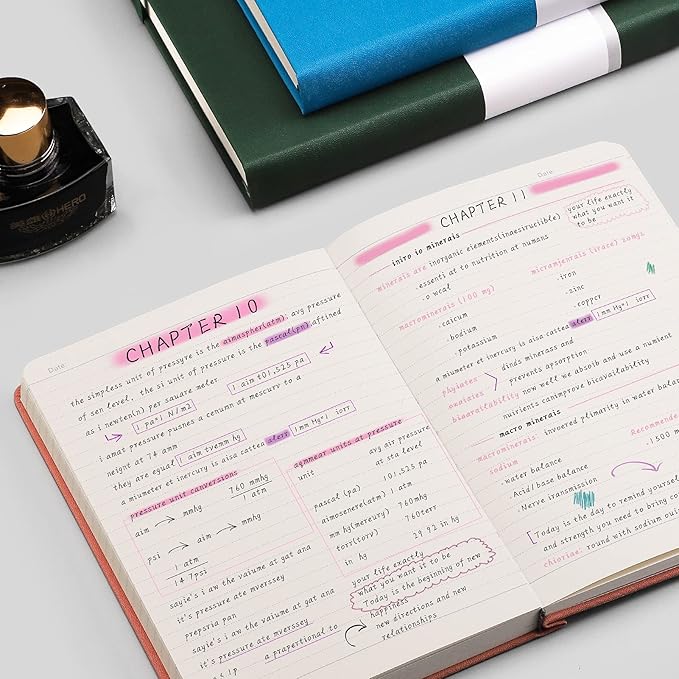 HERO
Date:
CHAPTER 10
the simpless unit of pressyre is the aimaspher(atm). avg pressure
of sen level. the si unit of pressure is the pascal(pn) aftined
as i newten(n) per square meler.
1 aim t01,525 pa
1 pa=1 N/m2
i amat pressure pusnes a cenunn at mescurv to a
neignt at 76 amm
they are equal 1 aim tvemm hg
a miumeter et inercury is aisa cattea alerr 1 mm Hg=1 iorr
pressure unit conversions
aim → mmhg 760 mmhg
1 atm
psi → aim → mmhg
1 atm
14 7psi
agmmear units at pressure
unit avg air pressure
at sta level
pascal (pa) 101,525 pa
aimosenere(atm) 1 atm
mm hg(mereury) 760mhg
torr(torv) 760terr
in hg 29 92 in hg
sayie's i aw the vaiume at gat ana
it's pressure ate mverssey
prepsria pan
sayie's i aw the vaiume at gat ana
it's pressure ate mverssey
a prapertional to
your life exactly
what you want it to be
Today is the beginning of new
happiness
new directions and new
relationships
Date:
CHAPTER 11
your life exactly
what you want it
to be
iniro io minerais
minerais are inorganic elements(inaesiruciible)
. essenti at to nutrition at numans
.o wcal
macrominerais (100 mg)
.caicum
.bodium
.potassium
micramienrais (irace) zomgs
.iron
.zinc
.copper
a miumeter et inercury is aisa cattea alerr 1 mm Hg=1 iorr
phyiates
oxaiaies
dinds minerass and
prevents apsorption
bioavailability now well we absoib and use a nutient
nutrients canimprove bicavailability
macro minerais
macrominerais: invoered plimarity in water balance
sodium
.water balance
.Acid/base balance
.Nerve transmission
Recommende
.1,500 m
Today is the day to remind yourself
and strength you need to bring
chioriae: round with sodium